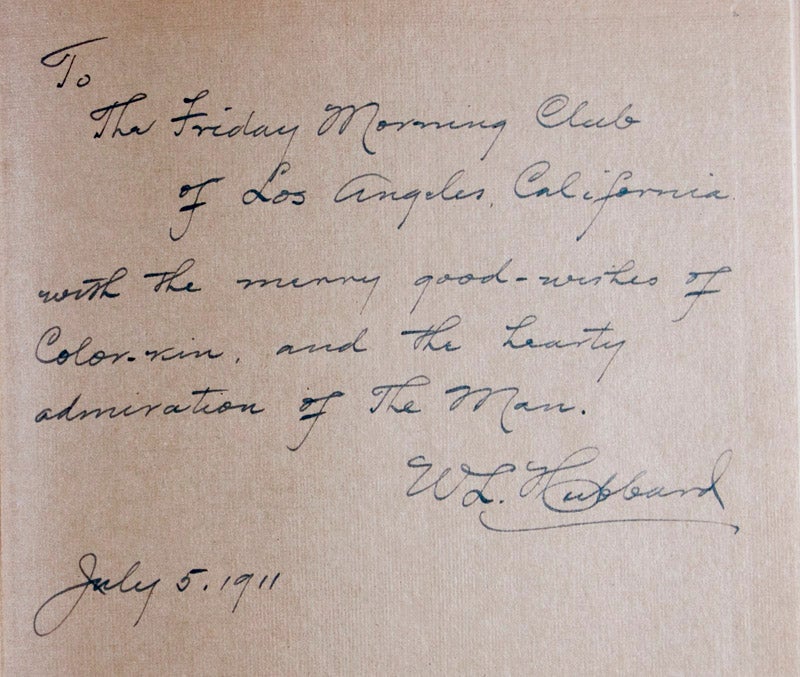 To
The Friday Morning Club
of Los Angeles, California
with the merry good-wishes of
Color-kin, and the hearty
admiration of The Man.
W L. Hubbard
July 5. 1911